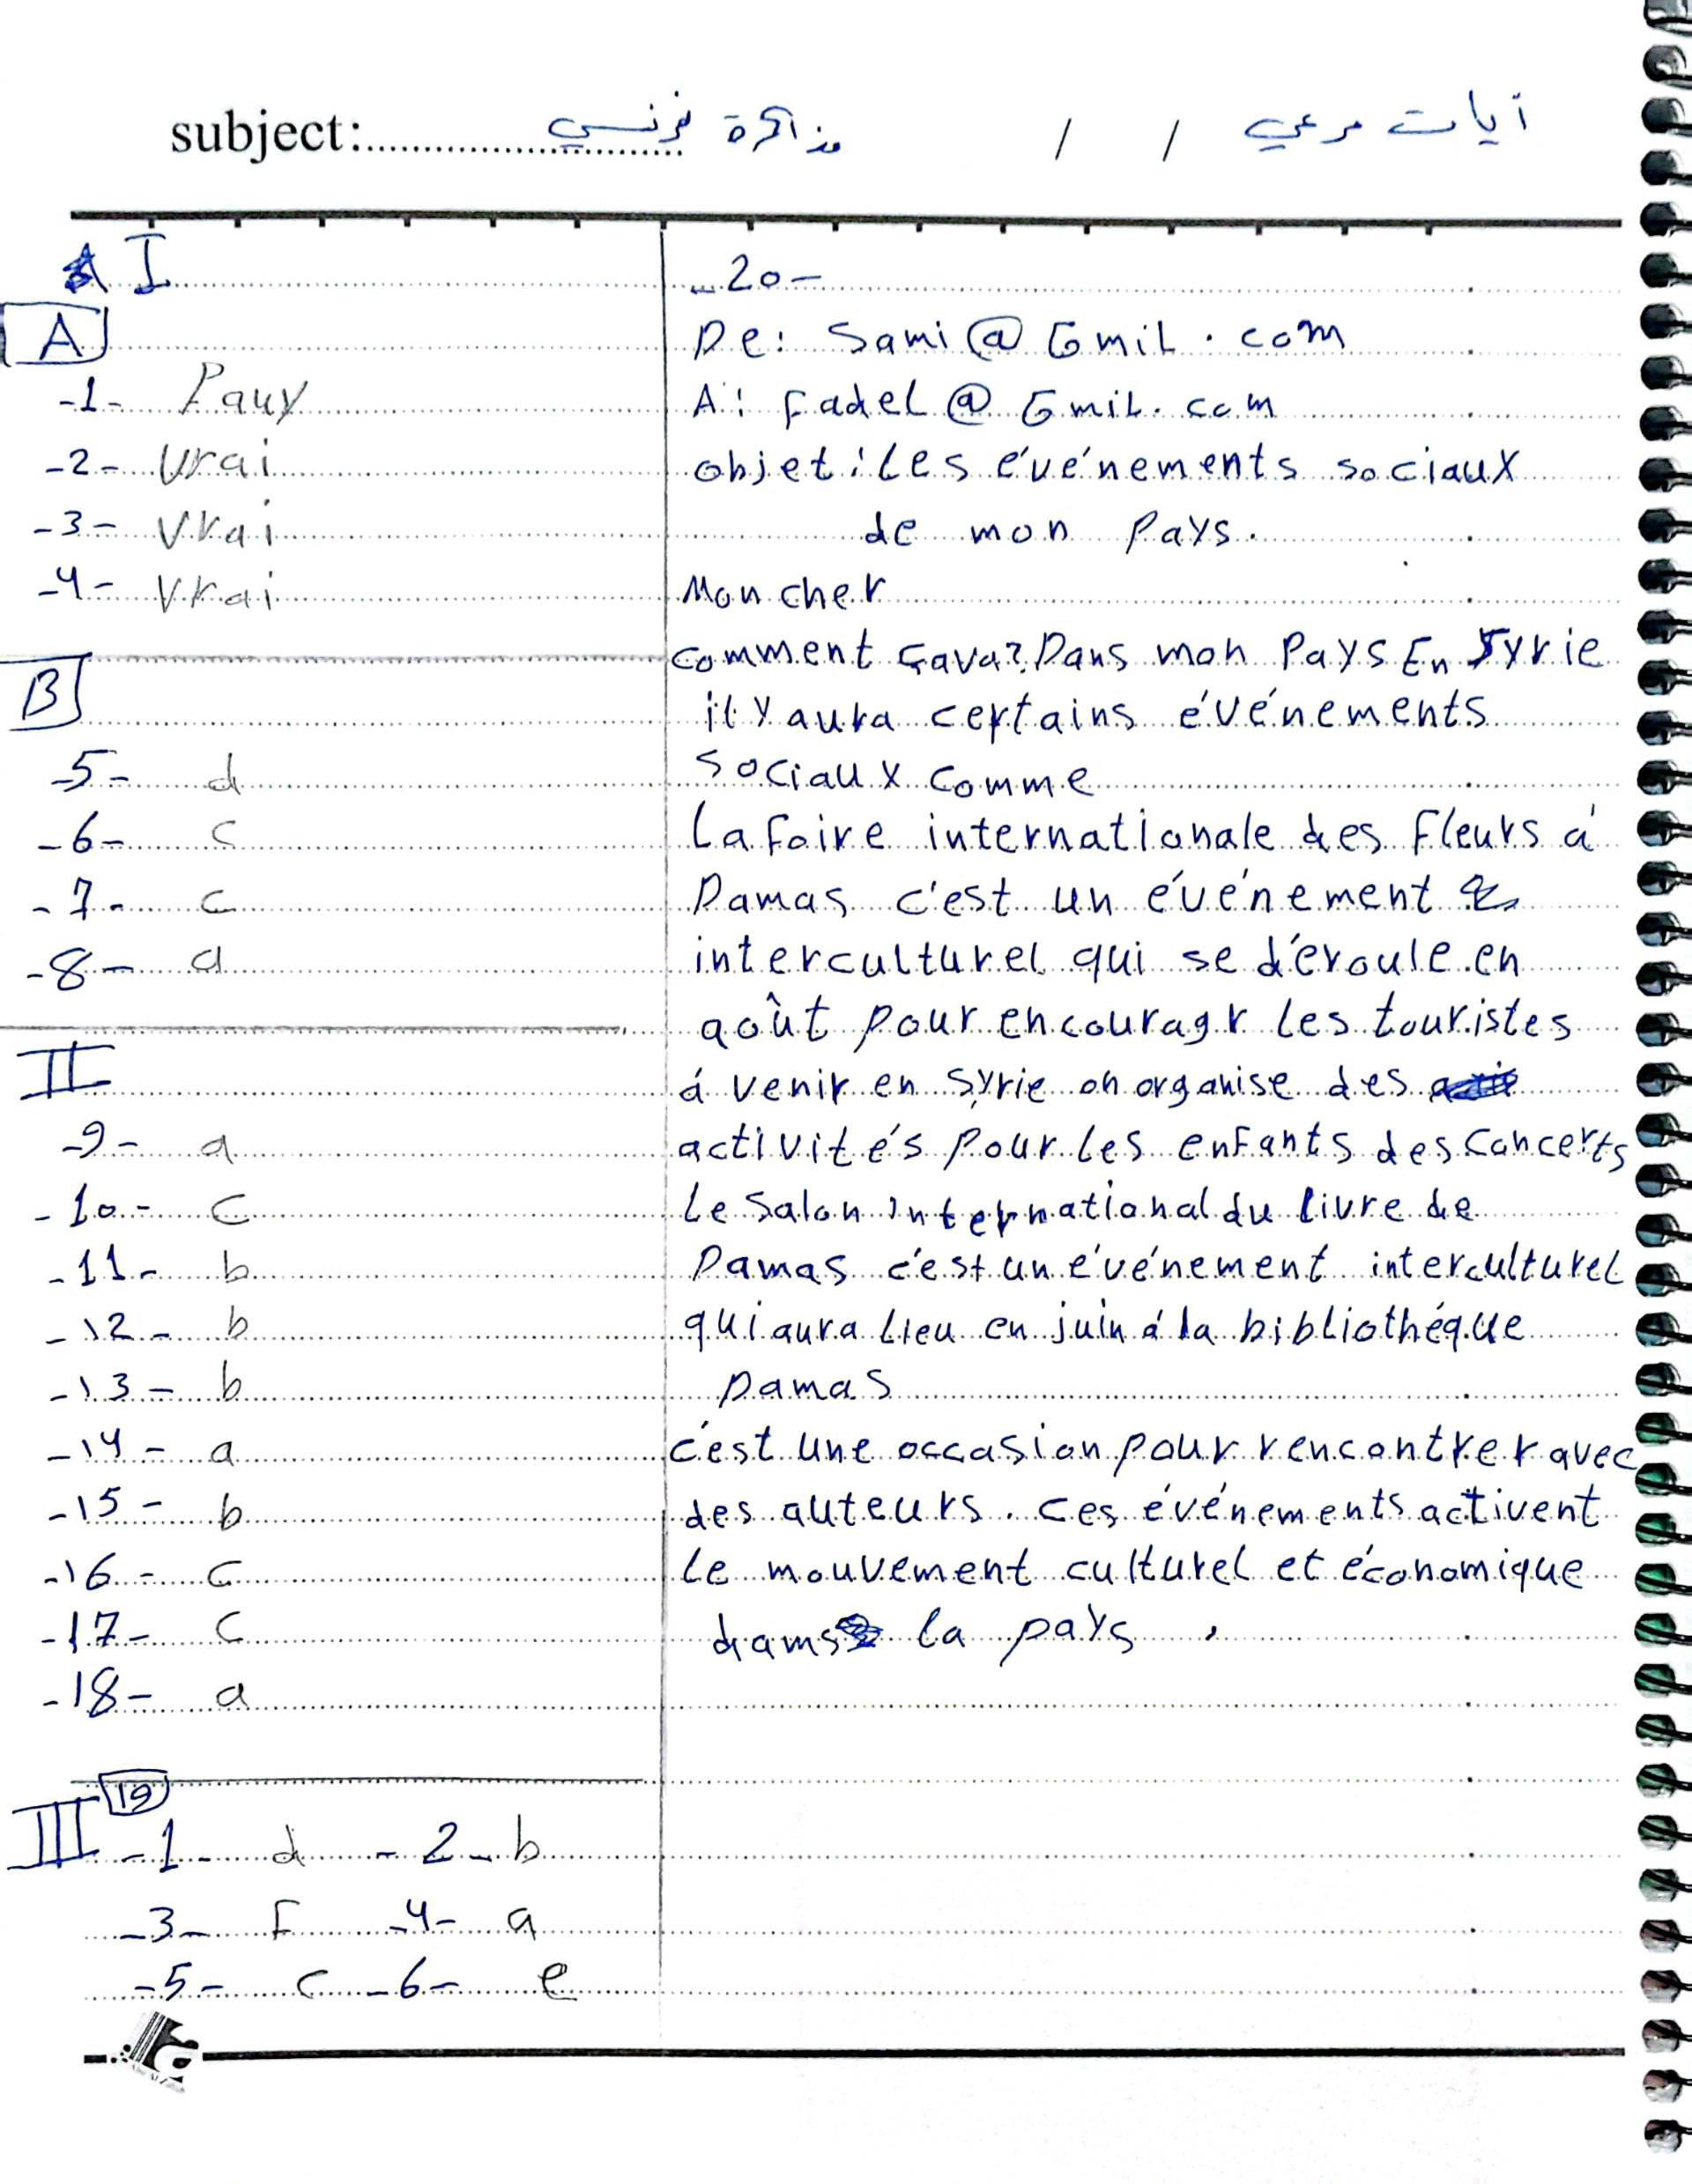 subject:........................... مذاكرة فرنسي / / آيات مرعي
I
A
-1- Pauy
-2- Vrai
-3- Vrai
-4- Vrai
B
-5- d
-6- c
-7- c
-8- d
II
-9- a
-10- c
-11- b
-12- b
-13- b
-14- a
-15- b
-16- c
-17- c
-18- a
19
III -1- d -2- b
-3- F -4- a
-5- c -6- e
-20-
De: Sami@Gmil.com
A: Fadel@Gmil.com
objet: Les événements sociaux
de mon Pays.
Mon cher
comment çava? Dans mon Pays En Syrie
il y aura certains événements
sociaux comme
La foire internationale des Fleurs á
Damas c'est un événement
interculturel qui se déroule en
août pour encouragr les touristes
á venir en Syrie on organise des
activités pour les enfants des concerts
Le Salon international du livre de
Damas c'est un événement interculturel
qui aura Lieu en juin á la bibliothéque
Damas
c'est une occasion pour rencontrer avec
des auteurs. ces événements activent
le mouvement culturel et économique
dams la pays.